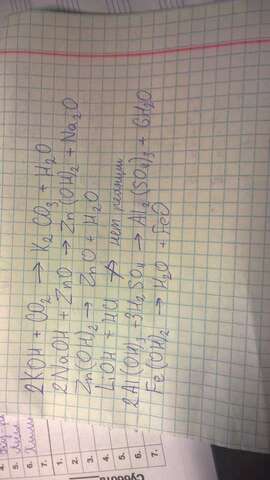 2KOH + CO₂ → K₂CO₃ + H₂O
2NaOH + ZnO → Zn(OH)₂ + Na₂O
Zn(OH)₂ → ZnO + H₂O
LiOH + HCl ↛ нет реакции
2Al(OH)₃ + 3H₂SO₄ → Al₂(SO₄)₃ + 6H₂O
Fe(OH)₂ → H₂O + FeO
5.
6.
7.
Суббота
1.
2.
3.
4.
5.
6.
7.